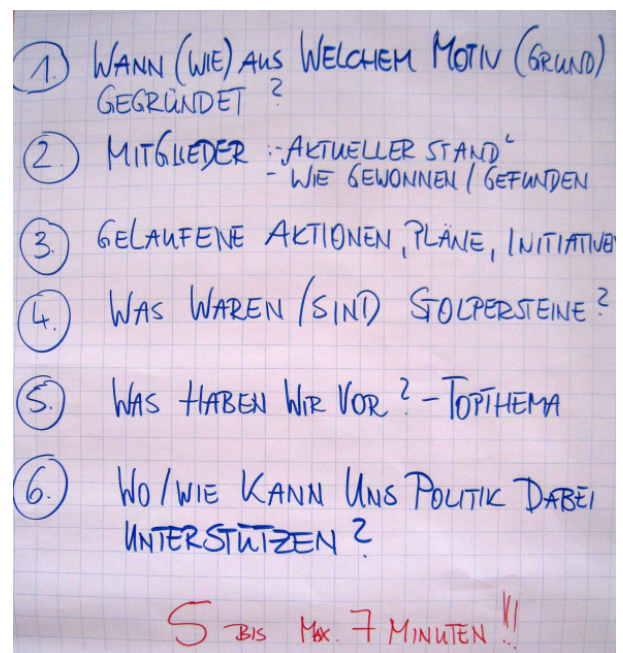 1. WANN (WIE) AUS WELCHEM MOTIV (GRUND)
GEGRÜNDET ?
2. MITGLIEDER :- AKTUELLER STAND
- WIE GEWONNEN / GEFUNDEN
3. GELAUFENE AKTIONEN, PLÄNE, INITIATIVEN
4. WAS WAREN /SIND STOLPERSTEINE ?
5. WAS HABEN WIR VOR ? - TOPTHEMA
6. WO/WIE KANN UNS POLITIK DABEI
UNTERSTÜTZEN ?
5 BIS MAX. 7 MINUTEN !!